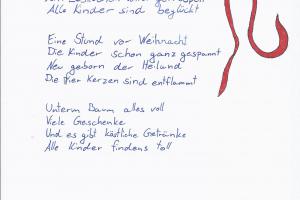 Alle Kinder sind beglückt
Eine Stund vor Weihnacht
Die Kinder schon ganz gespannt
Neu geborn der Heiland
Die vier Kerzen sind entflammt
Unterm Baum alles voll
Viele Geschenke
Und es gibt köstliche Getränke
Alle Kinder findens toll